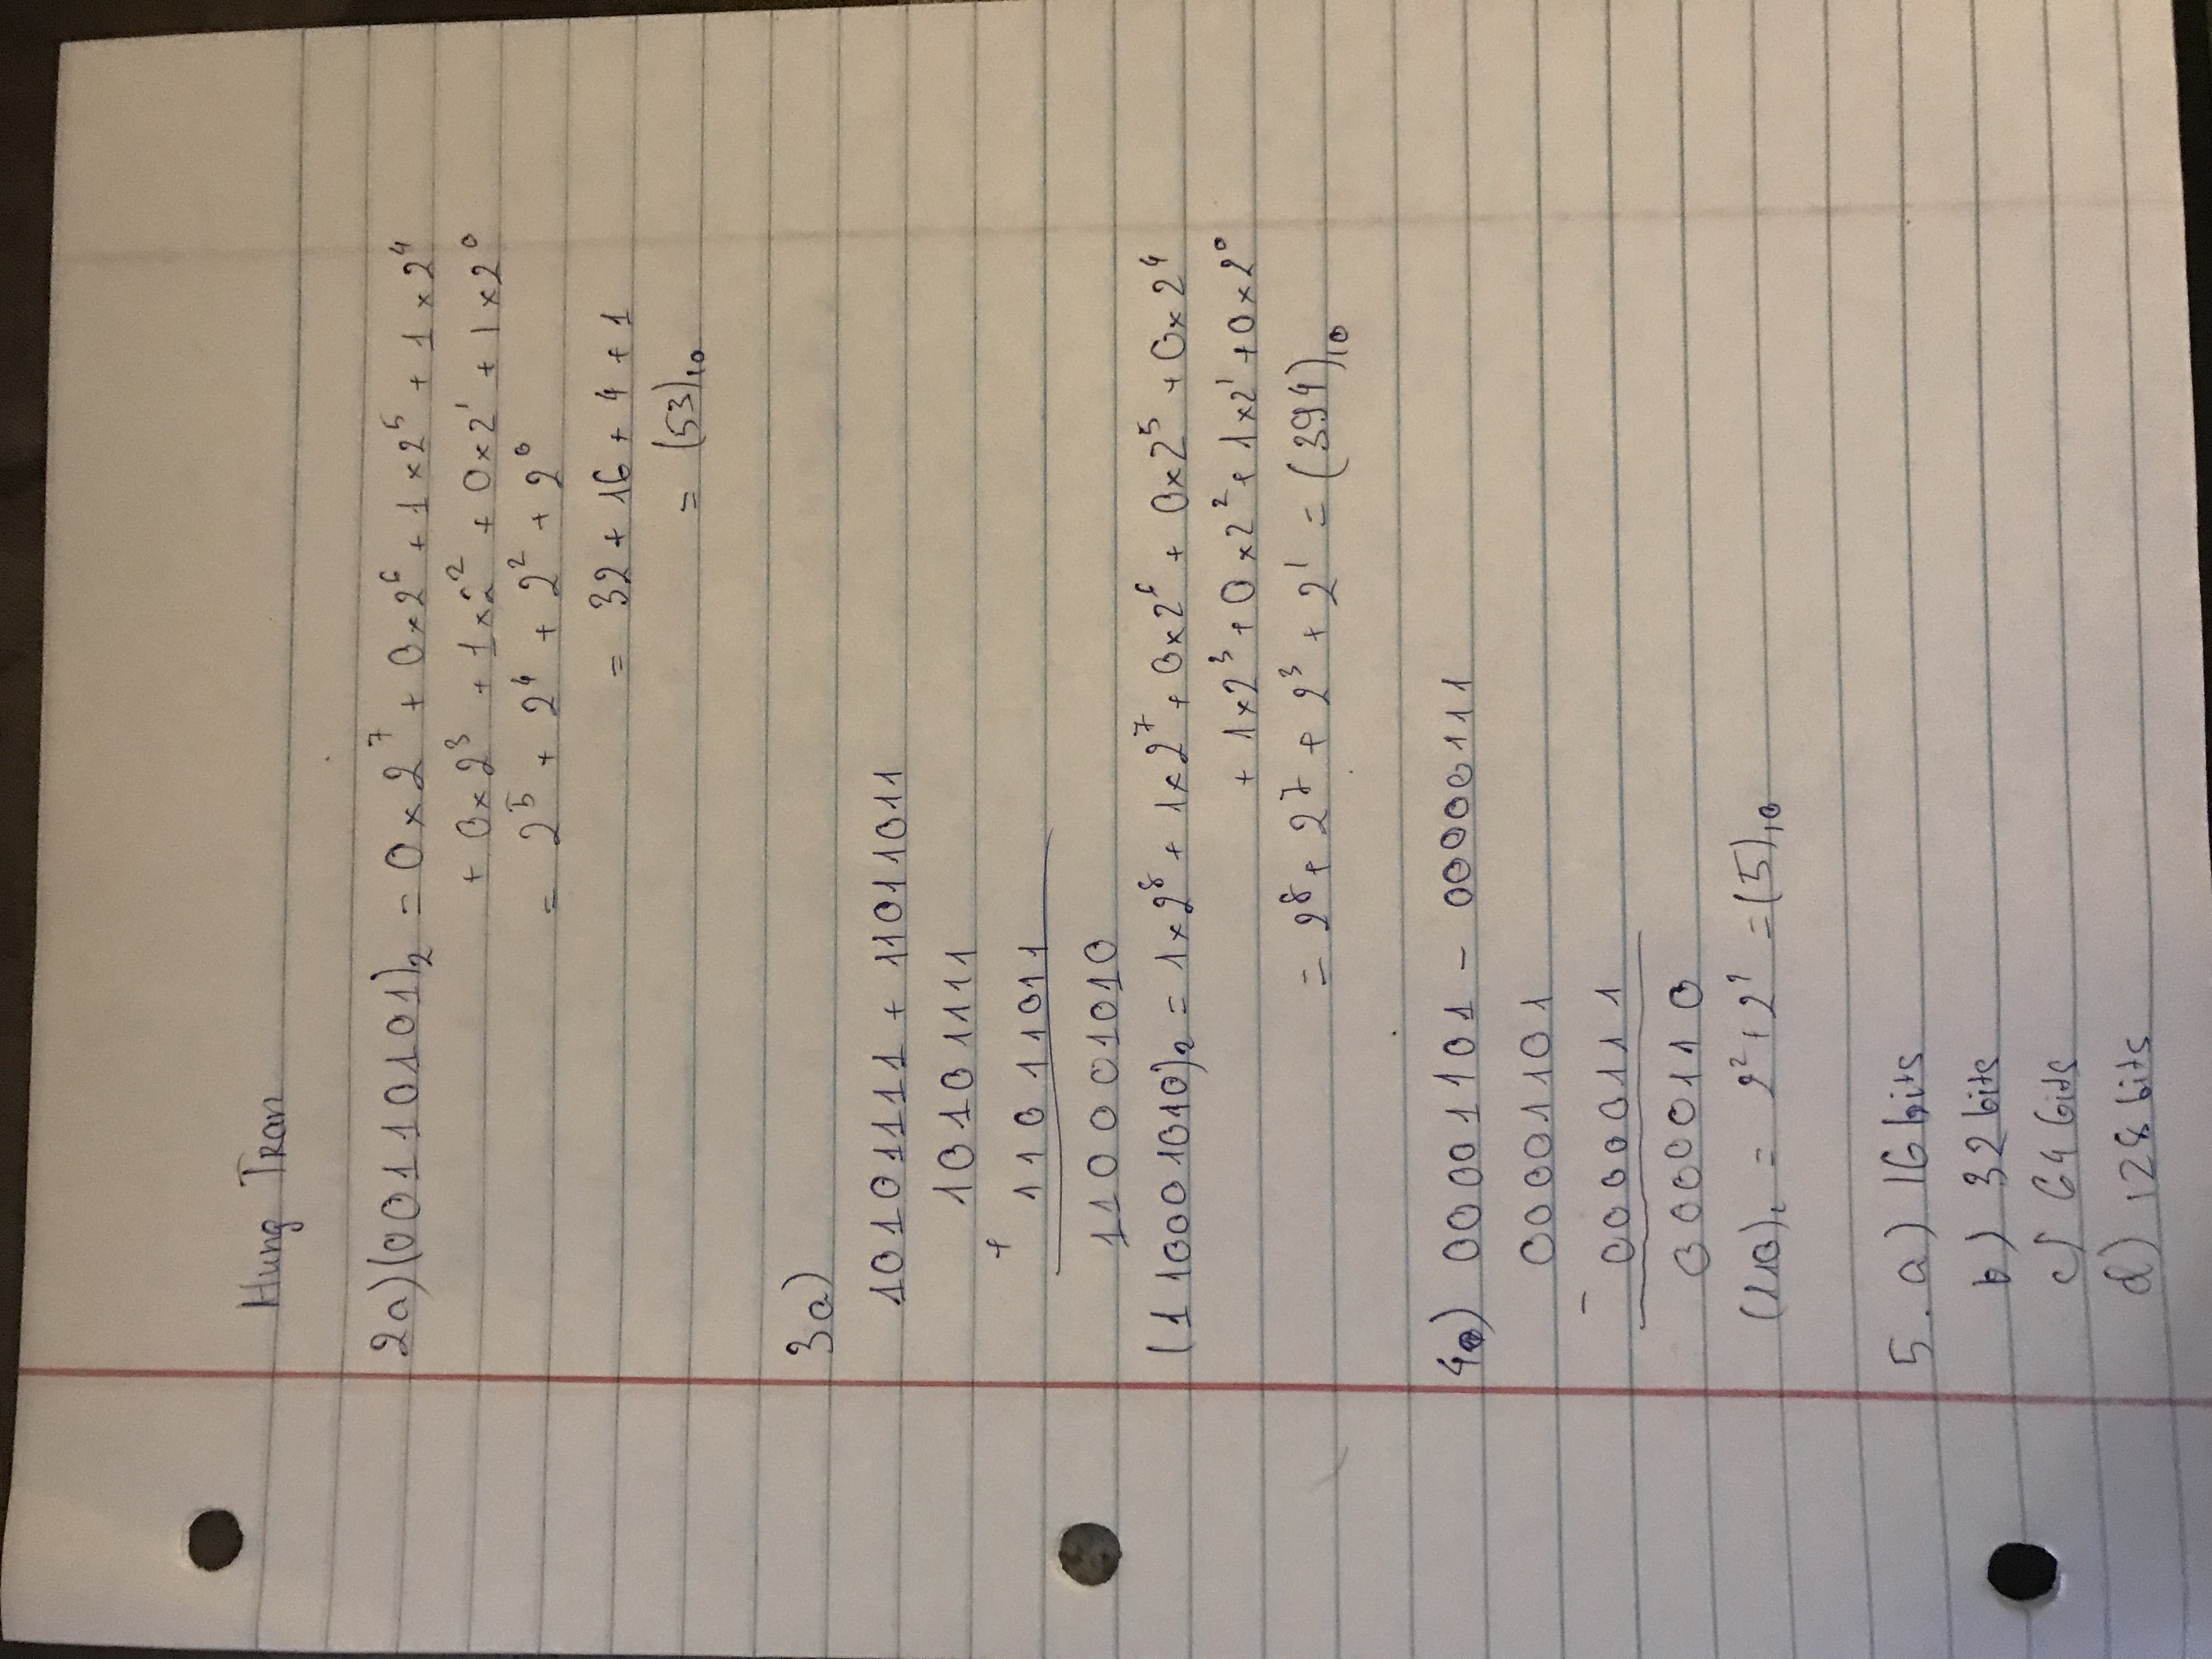 Hung Tran
2a) (00110101)₂ = 0 × 2⁷ + 0 × 2⁶ + 1 × 2⁵ + 1 × 2⁴
+ 0 × 2³ + 1 × 2² + 0 × 2¹ + 1 × 2⁰
= 2⁵ + 2⁴ + 2² + 2⁰
= 32 + 16 + 4 + 1
= (53)₁₀
3a)
10101111 + 11011011
10101111
+
11011011
110001010
(110001010)₂ = 1 × 2⁸ + 1 × 2⁷ + 0 × 2⁶ + 0 × 2⁵ + 0 × 2⁴
+ 1 × 2³ + 0 × 2² + 1 × 2¹ + 0 × 2⁰
= 2⁸ + 2⁷ + 2³ + 2¹ = (394)₁₀
4a) 00001101 - 00000111
00001101
-
00000111
00000110
(110)₂ = 2² + 2¹ = (5)₁₀
5. a) 16 bits
b) 32 bits
c) 64 bits
d) 128 bits